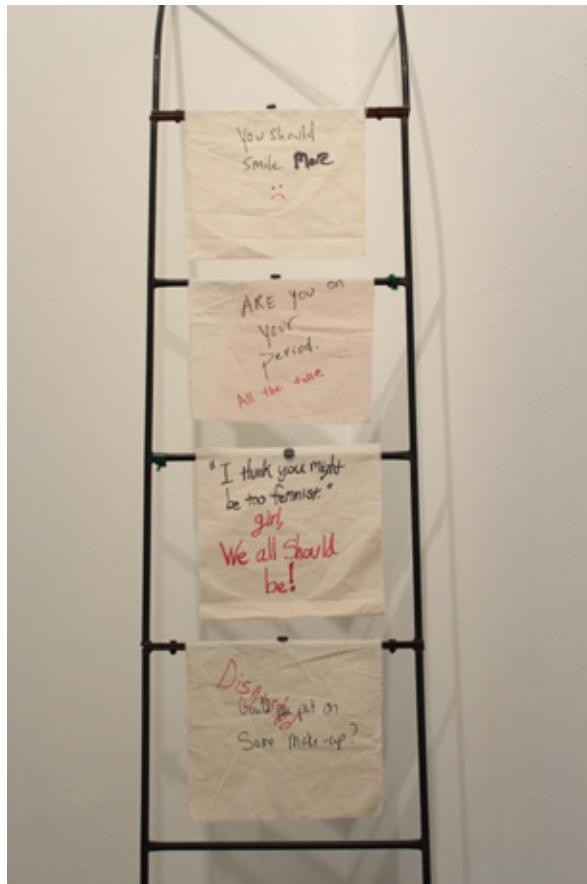 You should
smile MORE
:(
ARE You on
your
period.
All the time
"I think you might
be too feminist."
girl,
We all Should
be!
put on
Some make-up?